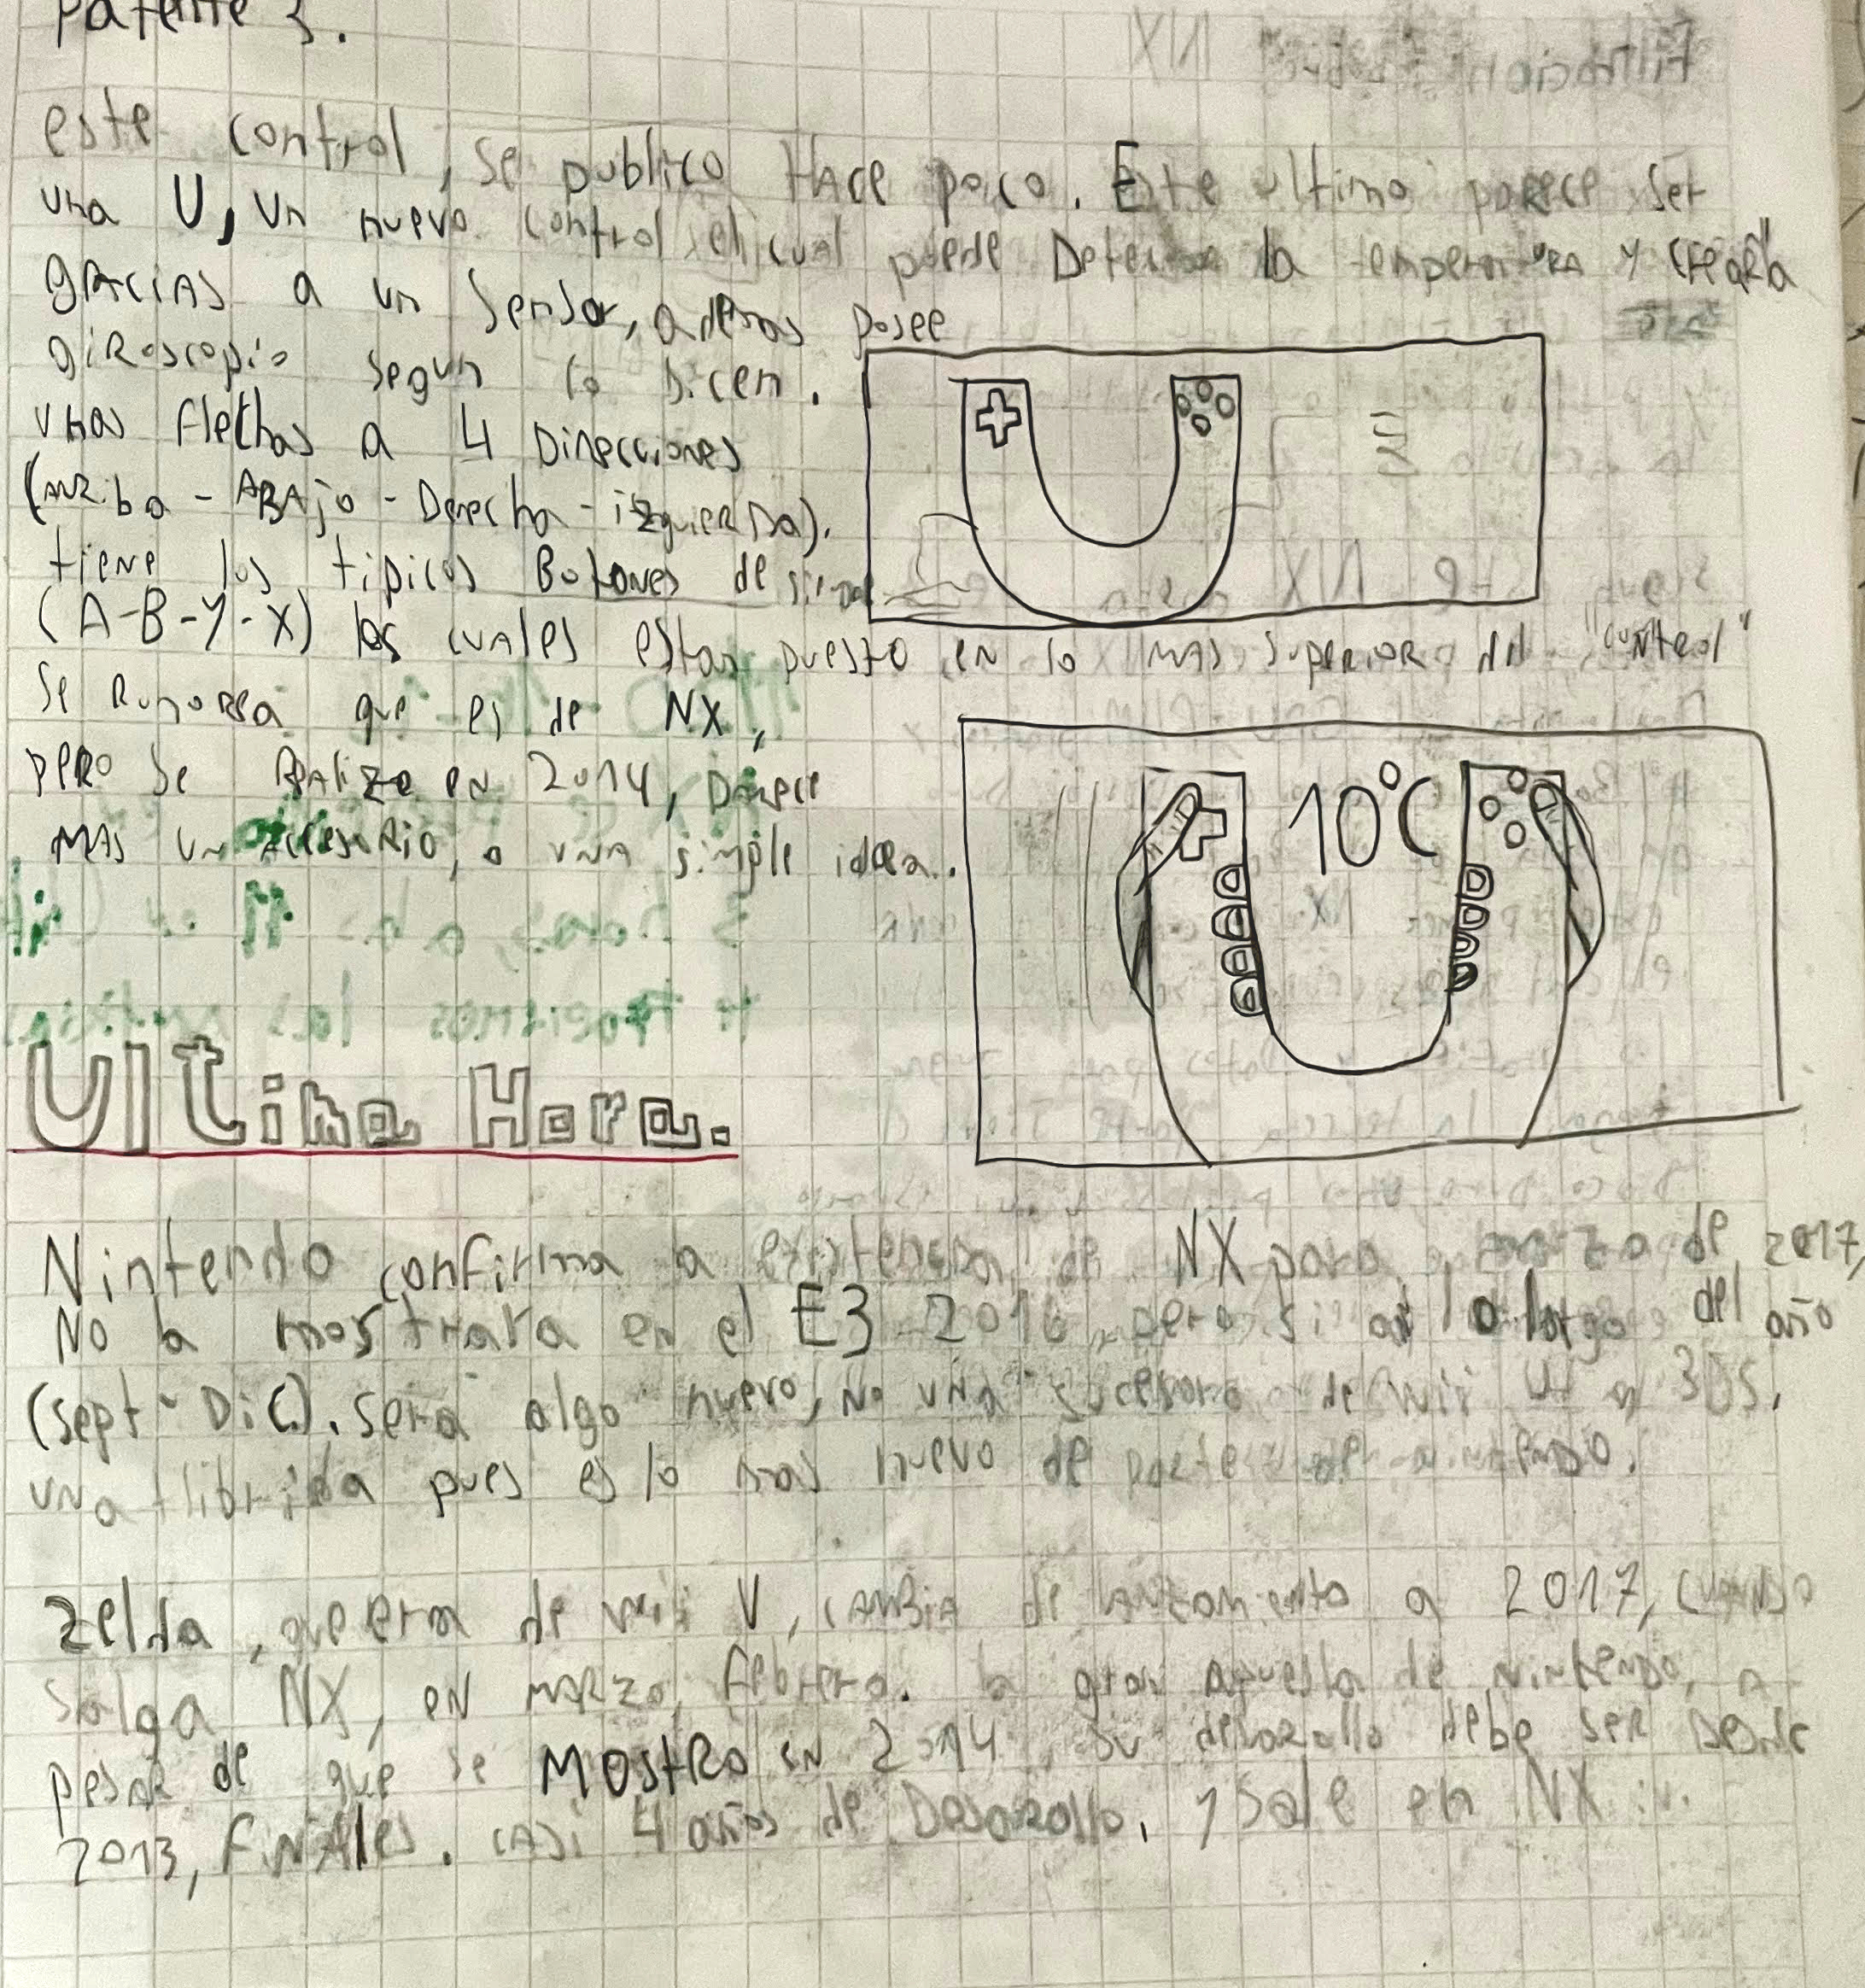 Patente 3.
este control, se publico Hace poco. Este ultimo parece ser
una U, un nuevo control el cual puede Detectar la temperatura y "crearla"
gracias a un sensor, ademas posee
giroscopio segun lo Dicen.
unas flechas a 4 Direcciones
(arriba - ABAjo - Derecha - izquierda).
tiene los tipicos Botones de
(A-B-Y-X) los cuales estan puesto en lo mas superior del "control"
Se Rumorea que es de NX,
pero se Realizo en 2014, parece
mas un accesorio, o una simple idea.
10°C
Ultima Hora.
Nintendo confirma a existencia de NX para marzo de 2017,
No la mostrara en el E3 2016 pero si a lo largo del año
(sept - Dic). Será algo nuevo, no una sucesora de wii U a 3DS.
una Hibrida pues es lo mas nuevo de parte de nintendo.
Zelda, que era de wii U, cambia de lanzamiento a 2017, cuando
salga NX, en marzo, febrero. la gran apuesta de nintendo, a
pesar de que se MOSTRO en 2014, su desarollo debe ser Desde
2013, finales. casi 4 años de Desarollo. y sale en NX